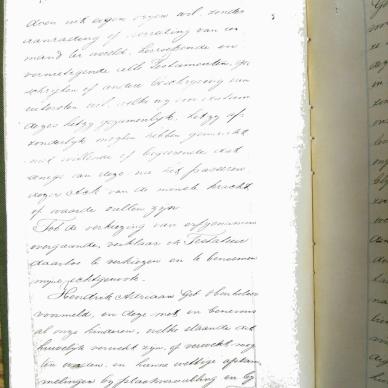 doen uit eigen vrijen wil, zonder
aanrading of misleiding van ie-
mand ter wereld, herroepende en
vernietigende alle Testamenten, ge-
schriften of andere beschrijving van
uitersten wil, welke wij voor datum
dezes hetzij gezamenlijk, hetzij af-
zonderlijk mogten hebben gemaakt
niet willende of begeerende dat
eenige van dezo na het passeren
dezer Acte van de minste kracht
of waarde zullen zijn
Tot de verkiezing van erfgenamen
overgaande, verklaar ik Testateur
daartoe te verkiezen en te benoemen
mijne echtgenoote.
Hendrik Adriaan
voormeld, en deze met en benevens
al onze kinderen, welke staande dit
huwelijk verwekt zijn, of verwekt mog-
ten worden, en hunne wettige afstam-
melingen bij plaatsvervulling en bij